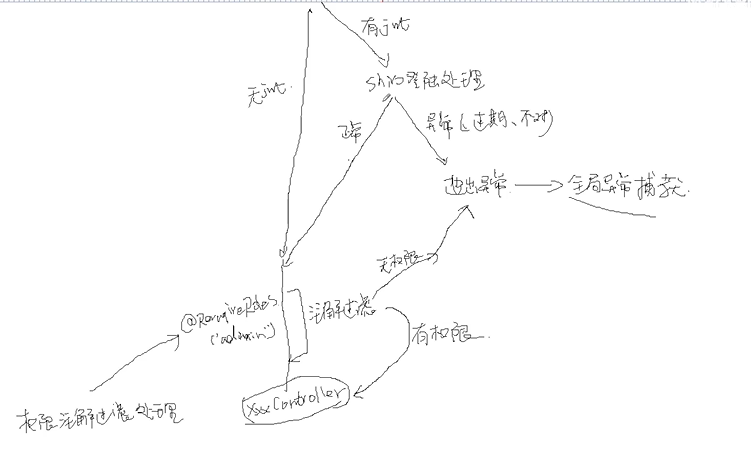 有jwt
无jwt
shiro登陆处理
正常
异常(过期、不对)
抛出异常
全局异常捕获
无权限
@RequireRoles
("admin")
注解过滤
有权限
XxxController
权限注解过滤处理